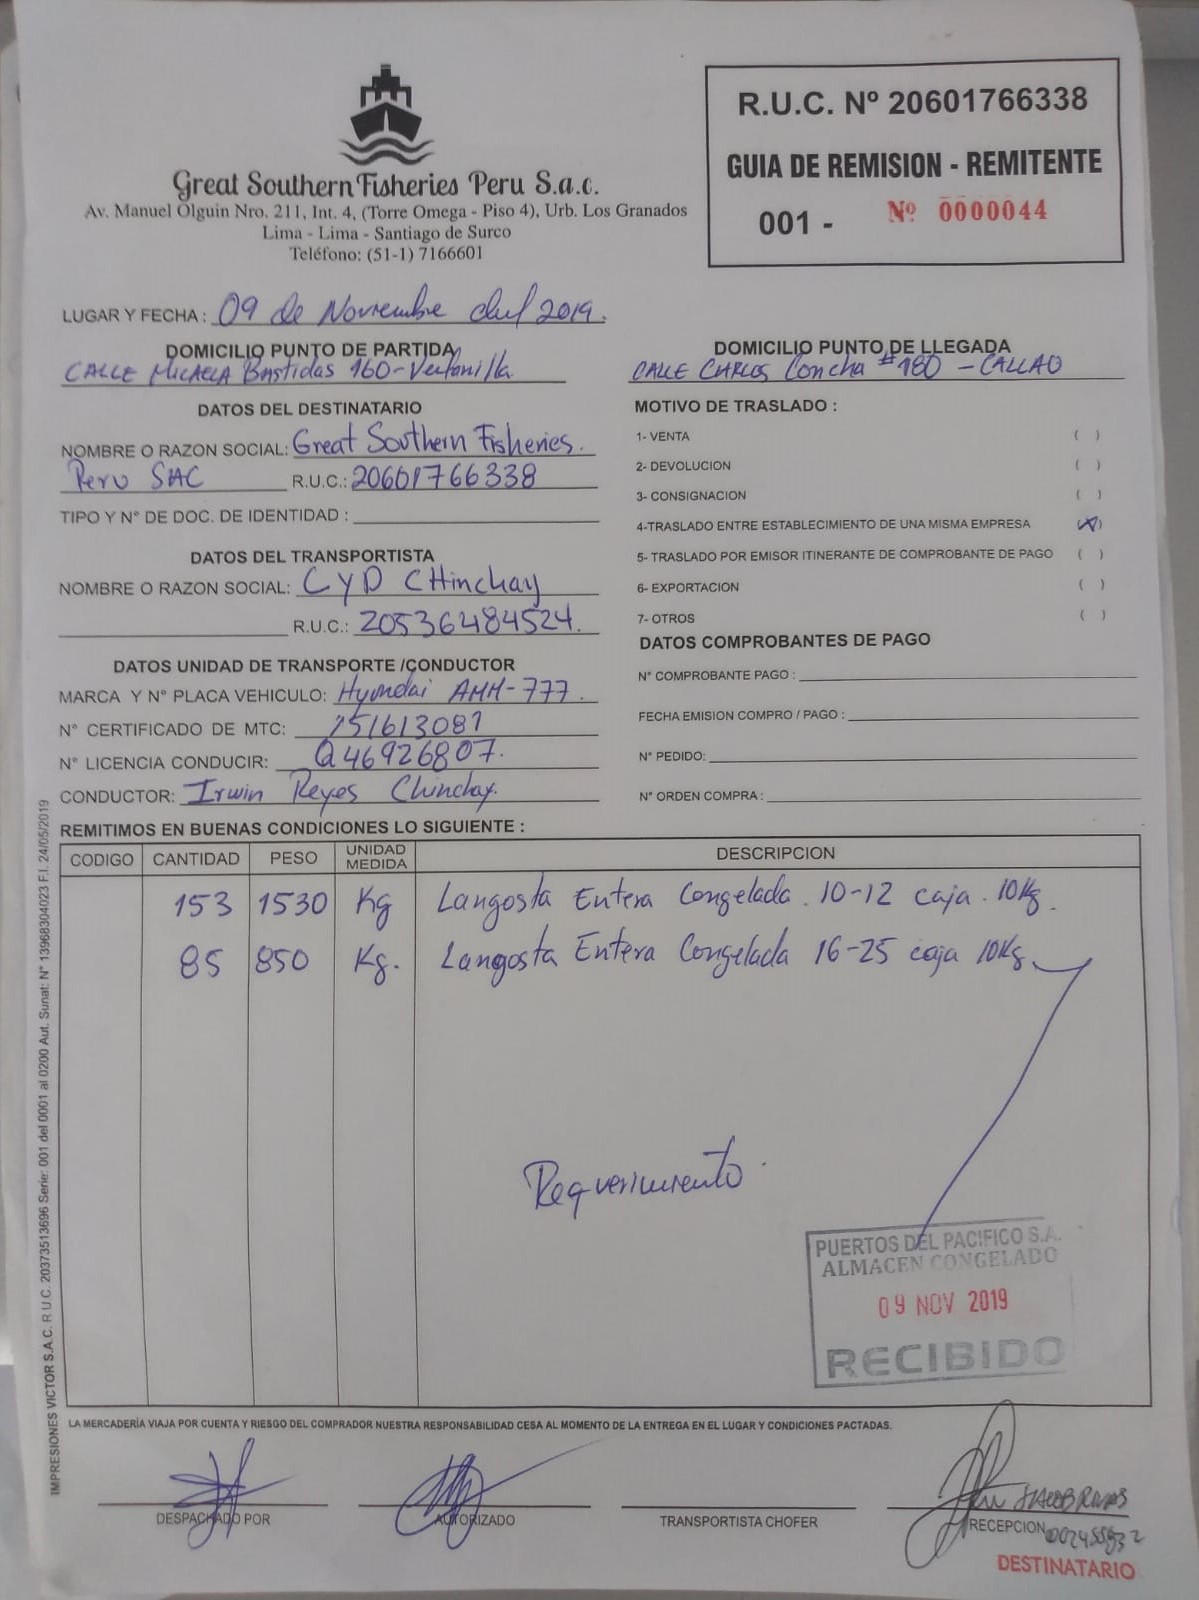 Great Southern Fisheries Peru S.a.c.
Av. Manuel Olguin Nro. 211, Int. 4, (Torre Omega - Piso 4), Urb. Los Granados
Lima - Lima - Santiago de Surco
Teléfono: (51-1) 7166601
R.U.C. Nº 20601766338
GUIA DE REMISION - REMITENTE
001 - Nº 0000044
LUGAR Y FECHA : 09 de Noviembre del 2019.
DOMICILIO PUNTO DE PARTIDA
CALLE MICAELA Bastidas 160-Ventanilla
DOMICILIO PUNTO DE LLEGADA
CALLE CARLOS Concha #180 - CALLAO
DATOS DEL DESTINATARIO
NOMBRE O RAZON SOCIAL: Great Southern Fisheries.
Peru SAC R.U.C.: 20601766338
TIPO Y N° DE DOC. DE IDENTIDAD :
DATOS DEL TRANSPORTISTA
NOMBRE O RAZON SOCIAL: CYD CHinchay
R.U.C.: 20536484524.
DATOS UNIDAD DE TRANSPORTE /CONDUCTOR
MARCA Y N° PLACA VEHICULO: Hyundai AHH-777.
N° CERTIFICADO DE MTC: 151613081
N° LICENCIA CONDUCIR: Q46926807.
CONDUCTOR: Irwin Reyes Chinchay.
MOTIVO DE TRASLADO :
1- VENTA ( )
2- DEVOLUCION ( )
3- CONSIGNACION ( )
4-TRASLADO ENTRE ESTABLECIMIENTO DE UNA MISMA EMPRESA (X)
5- TRASLADO POR EMISOR ITINERANTE DE COMPROBANTE DE PAGO ( )
6- EXPORTACION ( )
7- OTROS ( )
DATOS COMPROBANTES DE PAGO
N° COMPROBANTE PAGO :
FECHA EMISION COMPRO / PAGO :
N° PEDIDO:
N° ORDEN COMPRA :
REMITIMOS EN BUENAS CONDICIONES LO SIGUIENTE :
CODIGO CANTIDAD PESO UNIDAD MEDIDA DESCRIPCION
153 1530 Kg Langosta Entera Congelada. 10-12 caja. 10Kg.
85 850 Kg. Langosta Entera Congelada 16-25 caja 10Kg.
Requerimiento.
PUERTOS DEL PACIFICO S.A.
ALMACEN CONGELADO
09 NOV 2019
RECIBIDO
IMPRESIONES VICTOR S.A.C. R.U.C. 20373513696 Serie: 001 del 0001 al 0200 Aut. Sunat: N° 13968304023 F.I. 24/05/2019
LA MERCADERÍA VIAJA POR CUENTA Y RIESGO DEL COMPRADOR NUESTRA RESPONSABILIDAD CESA AL MOMENTO DE LA ENTREGA EN EL LUGAR Y CONDICIONES PACTADAS.
DESPACHADO POR
AUTORIZADO
TRANSPORTISTA CHOFER
JACOB
RECEPCION
DESTINATARIO